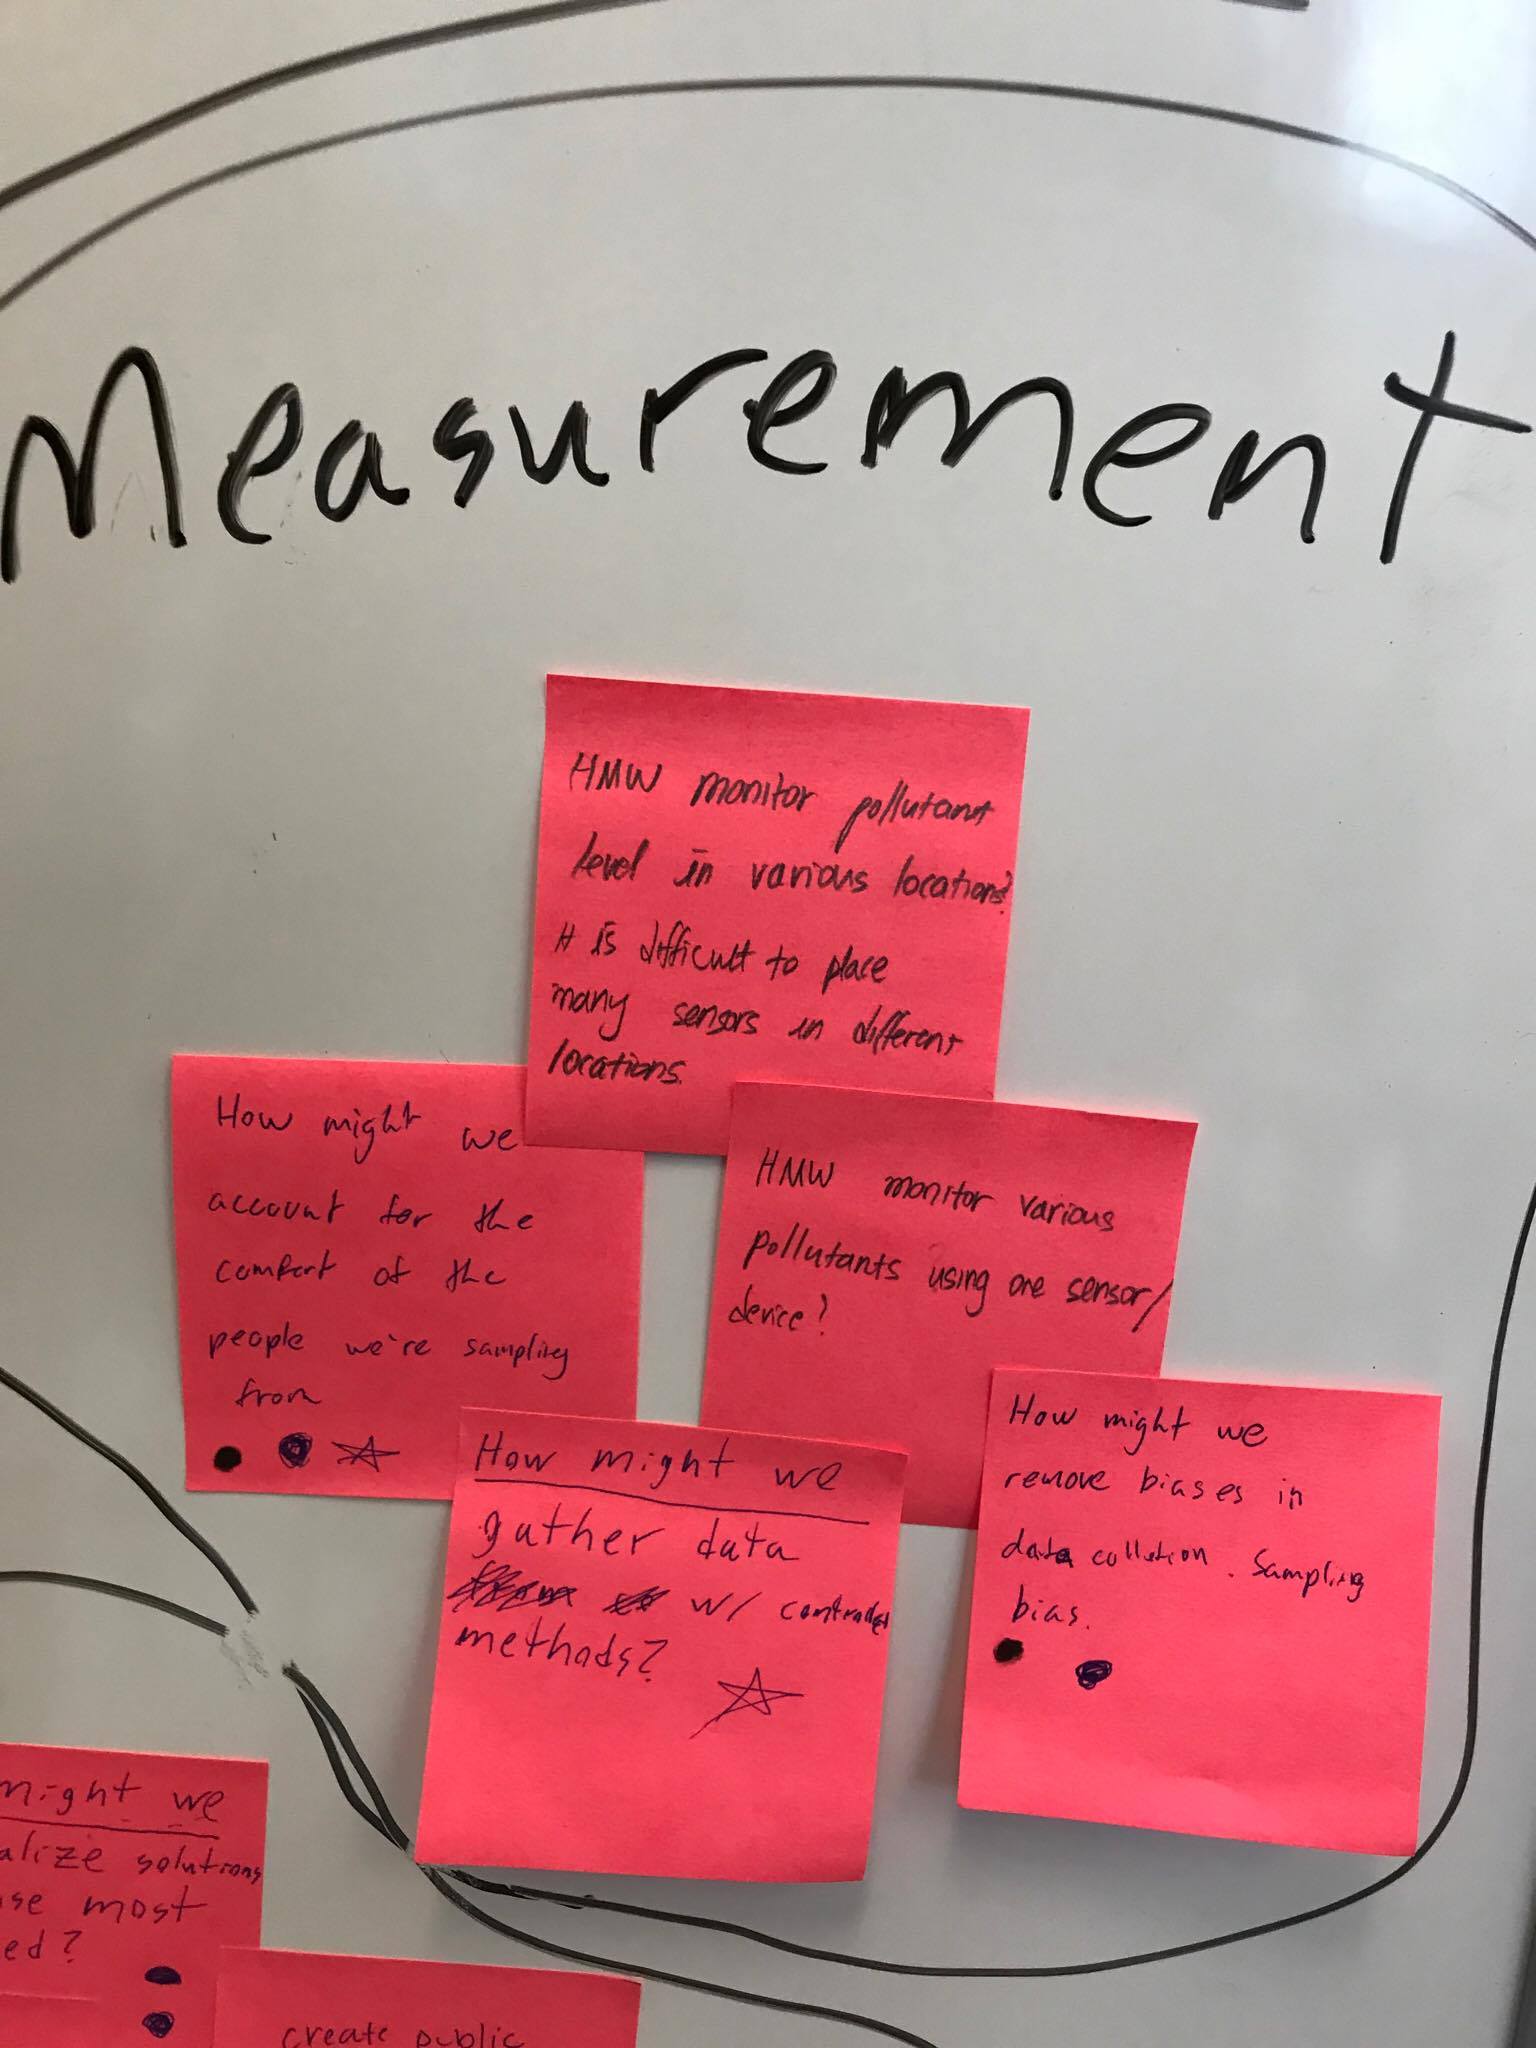 Measurement
HMW monitor pollutant
level in various locations?
It is difficult to place
many sensors in different
locations.
How might we
account for the
comfort of the
people we're sampling
from
HMW monitor various
pollutants using one sensor/
device?
How might we
gather data
w/ controlled
methods?
How might we
remove biases in
data collection. Sampling
bias.
might we
alize solutions
se most
ed?
create public